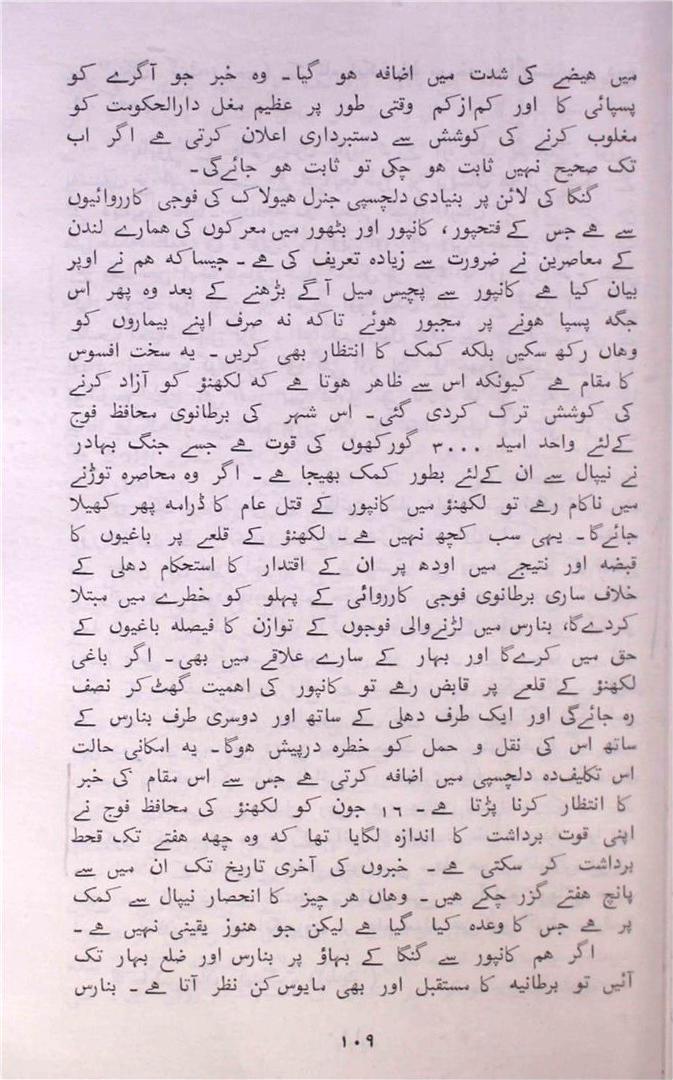 میں ھیضے کی شدت میں اضافہ ھو گیا۔ وہ خبر جو آگرے کو
پسپائی کا اور کم‌ازکم وقتی طور پر عظیم مغل دارالحکومت کو
مغلوب کرنے کی کوشش سے دستبرداری اعلان کرتی ھے اگر اب
تک صحیح نہیں ثابت ھو چکی تو ثابت ھو جائےگی۔
گنگا کی لائن پر بنیادی دلچسپی جنرل ھیولاک کی فوجی کارروائیوں
سے ھے جس کے فتحپور، کانپور اور بٹھور میں معرکوں کی ھمارے لندن
کے معاصرین نے ضرورت سے زیادہ تعریف کی ھے۔ جیساکہ ھم نے اوپر
بیان کیا ھے کانپور سے پچیس میل آگے بڑھنے کے بعد وہ پھر اس
جگہ پسپا ھونے پر مجبور ھوئے تاکہ نہ صرف اپنے بیماروں کو
وھاں رکھ سکیں بلکہ کمک کا انتظار بھی کریں۔ یہ سخت افسوس
کا مقام ھے کیونکہ اس سے ظاھر ھوتا ھے کہ لکھنؤ کو آزاد کرنے
کی کوشش ترک کردی گئی۔ اس شہر کی برطانوی محافظ فوج
کےلئے واحد امید ۳۰۰۰ گورکھوں کی قوت ھے جسے جنگ بہادر
نے نیپال سے ان کےلئے بطور کمک بھیجا ھے۔ اگر وہ محاصرہ توڑنے
میں ناکام رھے تو لکھنؤ میں کانپور کے قتل عام کا ڈرامہ پھر کھیلا
جائےگا۔ یہی سب کچھ نہیں ھے۔ لکھنؤ کے قلعے پر باغیوں کا
قبضہ اور نتیجے میں اودھ پر ان کے اقتدار کا استحکام دھلی کے
خلاف ساری برطانوی فوجی کارروائی کے پہلو کو خطرے میں مبتلا
کردےگا، بنارس میں لڑنےوالی فوجوں کے توازن کا فیصلہ باغیوں کے
حق میں کرےگا اور بہار کے سارے علاقے میں بھی۔ اگر باغی
لکھنؤ کے قلعے پر قابض رھے تو کانپور کی اھمیت گھٹ‌کر نصف
رہ جائےگی اور ایک طرف دھلی کے ساتھ اور دوسری طرف بنارس کے
ساتھ اس کی نقل و حمل کو خطرہ درپیش ھوگا۔ یہ امکانی حالت
اس تکلیف‌دہ دلچسپی میں اضافہ کرتی ھے جس سے اس مقام کی خبر
کا انتظار کرنا پڑتا ھے۔ ۱۶ جون کو لکھنؤ کی محافظ فوج نے
اپنی قوت برداشت کا اندازہ لگایا تھا کہ وہ چھہ ھفتے تک قحط
برداشت کر سکتی ھے۔ خبروں کی آخری تاریخ تک ان میں سے
پانچ ھفتے گزر چکے ھیں۔ وھاں ھر چیز کا انحصار نیپال سے کمک
پر ھے جس کا وعدہ کیا گیا ھے لیکن جو ھنوز یقینی نہیں ھے۔
اگر ھم کانپور سے گنگا کے بہاؤ پر بنارس اور ضلع بہار تک
آئیں تو برطانیہ کا مستقبل اور بھی مایوس‌کن نظر آتا ھے۔ بنارس
۱۰۹